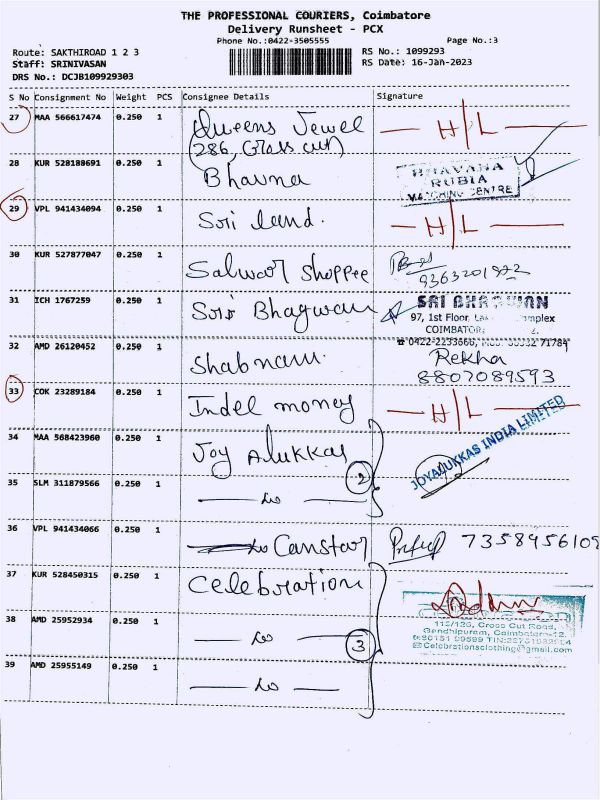 THE PROFESSIONAL COURIERS, Coimbatore
Delivery Runsheet - PCX
Phone No.:0422-3505555
Page No.:3
Route: SAKTHIROAD 1 2 3
RS No.: 1099293
Staff: SRINIVASAN
RS Date: 16-Jan-2023
DRS No.: DCJB109929303
S No Consignment No Weight PCS Consignee Details Signature
27 MAA 566617474 0.250 1 Queens Jewel H/L
(286, Cross cut)
28 KUR 528188691 0.250 1 Bhavna BHAVANA
RUBIA
MATCHING CENTRE
29 VPL 941434094 0.250 1 Sri land. H/L
30 KUR 527877047 0.250 1 Salwar Shoppee
31 ICH 1767259 0.250 1 Sri Bhagwan SRI BHAGWAN
97, 1st Floor,
COIMBATOR
0422-2233666,
32 AMD 26120452 0.250 1 Shabnam. Rekha
8807089593
33 COK 23289184 0.250 1 Indel money H/L
34 MAA 568423960 0.250 1 Joy Alukkas JOYALUKKAS INDIA LIMITED
2
35 SLM 311879566 0.250 1 — Do —
36 VPL 941434066 0.250 1 Canstar 7358956109
37 KUR 528450315 0.250 1 Celebration
38 AMD 25952934 0.250 1 — Do — 3
Cross Cut Road,
Gandhipuram, Coimbatore-12.
Celebrationsclothing@gmail.com
39 AMD 25955149 0.250 1 — Do —